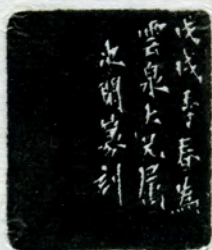 戊戌季春為
雲泉大兄屬
篆刻